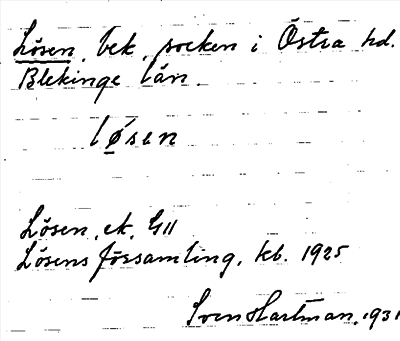 Lösen, bek. socken i Östra hd.
Blekinge län.
lǿ̱sen
Lösen, ek. G11
Lösens församling, kb. 1925
Sven Hartman. 1931